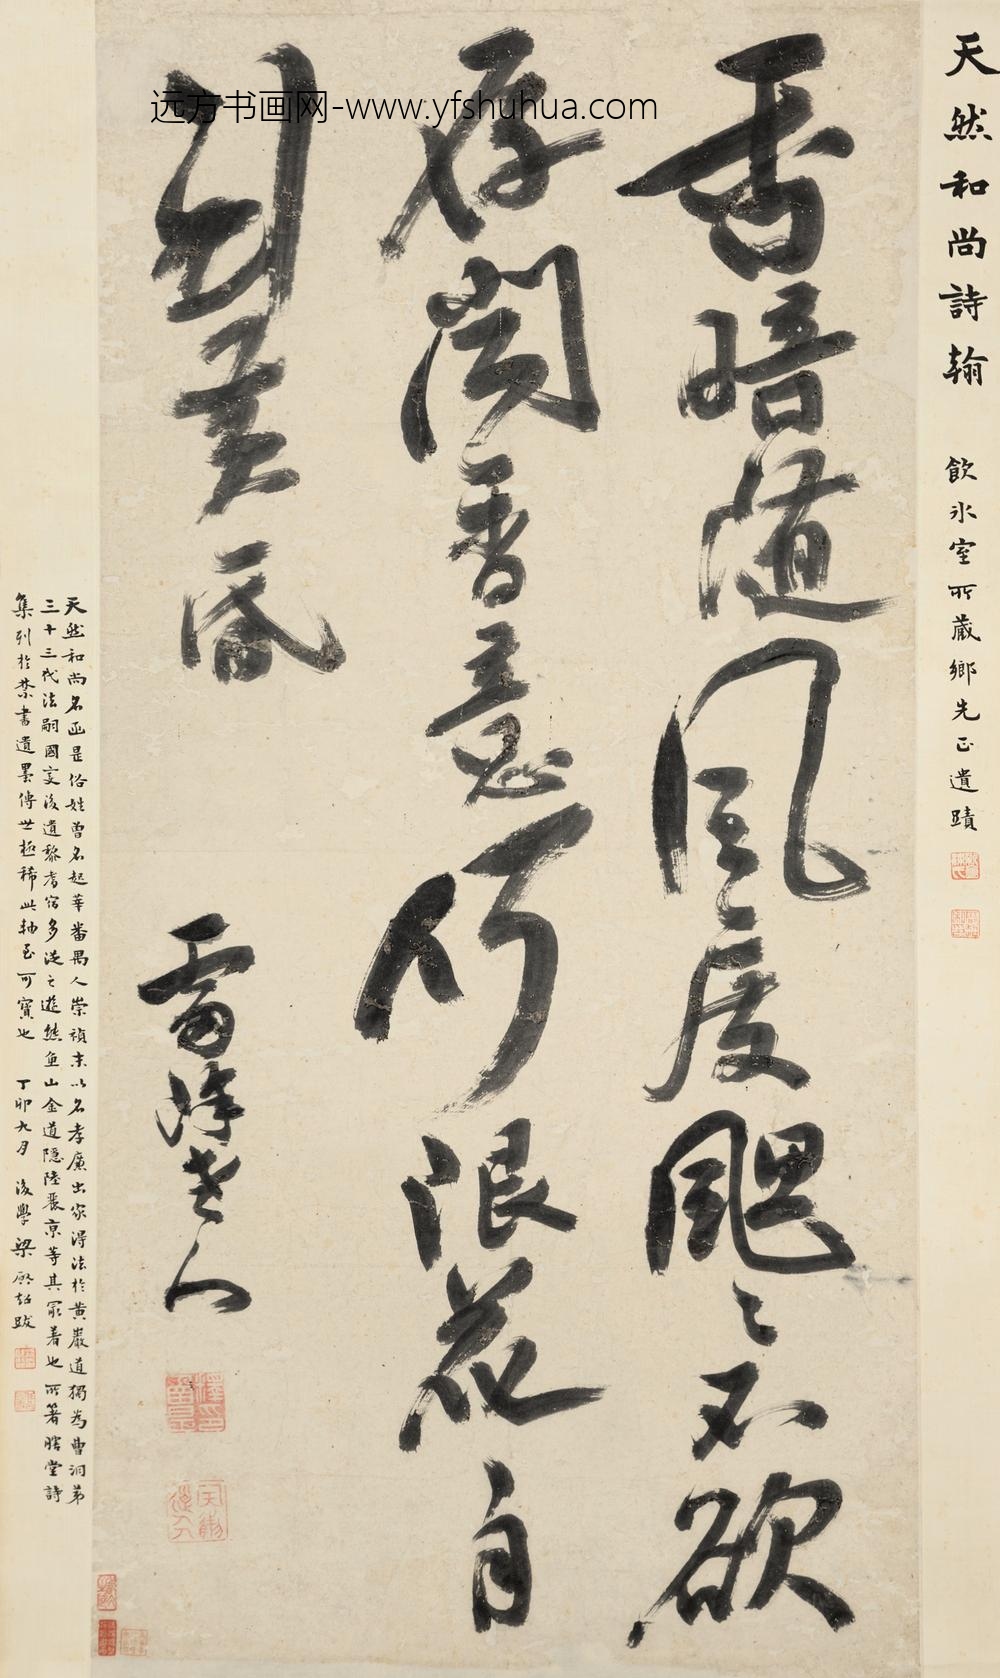 天然和尚詩翰 飲冰室所藏鄉先正遺蹟
香暗隨風度颸〻不欲
存聞香意何限花自
到黃昏
雷峰老人
天然和尚名函昰俗姓曾名起莘番禺人崇禎末以名孝廉出家得法於黃巖道獨為曹洞第
三十三代法嗣國變後遺黎耆宿多從之遊熊魚山金道隱陸麗京等其最著也所著瞎堂詩
集列於禁書遺墨傳世極稀此軸至可寶也 丁卯九月 後學梁啟超跋
远方书画网-www.yfshuhua.com